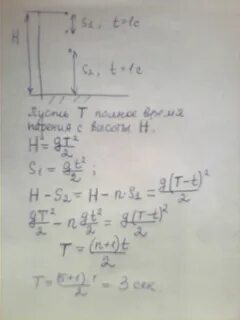 S₁, t=1c
H
S₂, t=1c
Пусть T полное время
падения с высоты H.
H = gT²/2
S₁ = gt²/2 ;
H - S₂ = H - n·S₁ = g(T-t)²/2
gT²/2 - n gt²/2 = g(T-t)²/2
T = (n+1)t/2
T = (5+1)·1/2 = 3 сек.